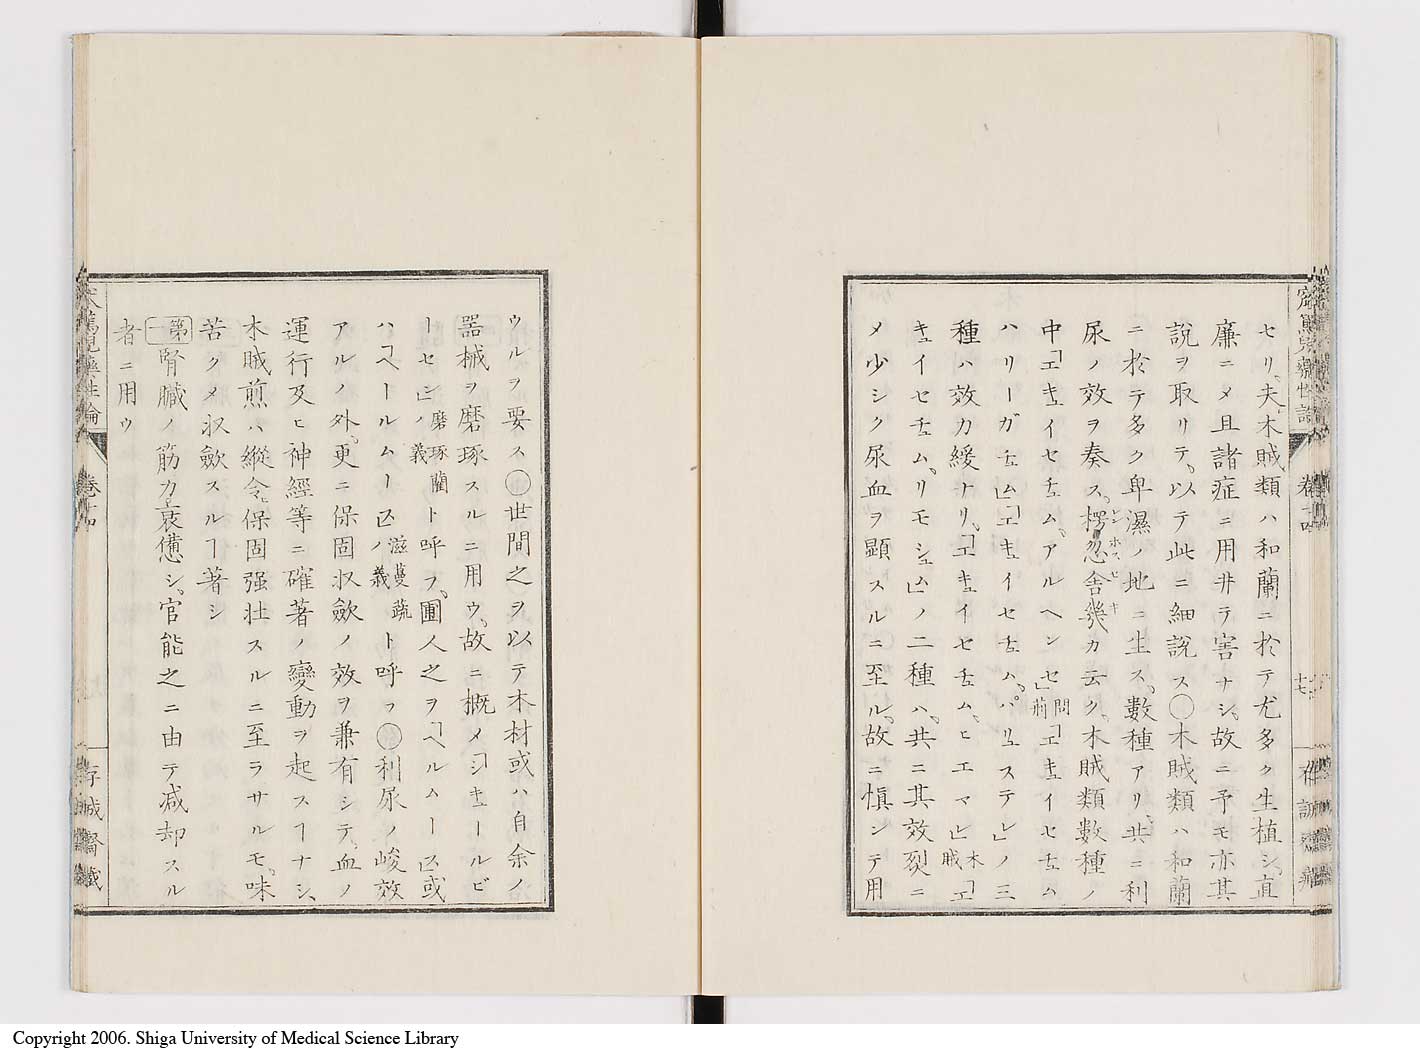 セリ、夫、木賊類ハ和蘭ニ於テ尤多ク生植シ、直
廉ニメ且諸症ニ用井テ害ナシ、故ニ予モ亦其
説ヲ取リテ、以テ此ニ細説ス〇木賊類ハ和蘭
ニ於テ多ク卑濕ノ地ニ生ス、數種アリ、共ニ利
尿ノ效ヲ奏ス、楞忽舎幾カ云ク、木賊類數種ノ
レンホスセキ
中「エキュイセチュム、アルヘンセ」問荊「エキュイセチュム
ハリーガチュム」「エキュイセチュハ、パリュステレ」ノ三
種ハ效力緩ナリ、「エキュイセチュム、ヒエマレ」木賊「エ
キュイセチュム、リモシュム」ノ二種ハ、共ニ其效裂ニ
メ少シク尿血ヲ顕スルニ至ル、故ニ慎ンテ用
十七
ウルヲ要ス〇世間之ヲ以テ木材或ハ自余ノ
器械ヲ磨琢スルニ用ウ、故ニ概メ「シキュールビ
ーセン」ノ義磨琢藺ト呼フ、圃人之ヲ「ヘルムー」又或
ハ「ヘールルムー」又ノ義滋蔓蔬ト呼フ〇利尿ノ峻效
アルノ外、更ニ保固收斂ノ效ヲ兼有シテ、血ノ
運行及ヒ神經等ニ確著ノ變動ヲ起スヿナシ、
木賊煎ハ縦令、保固强壮スルニ至ラサルモ、味
苦クメ收斂スルヿ著シ
第一 腎臓ノ筋力衰憊シ、官能之ニ由テ减却スル
者ニ用ウ
藥性論
卷十四